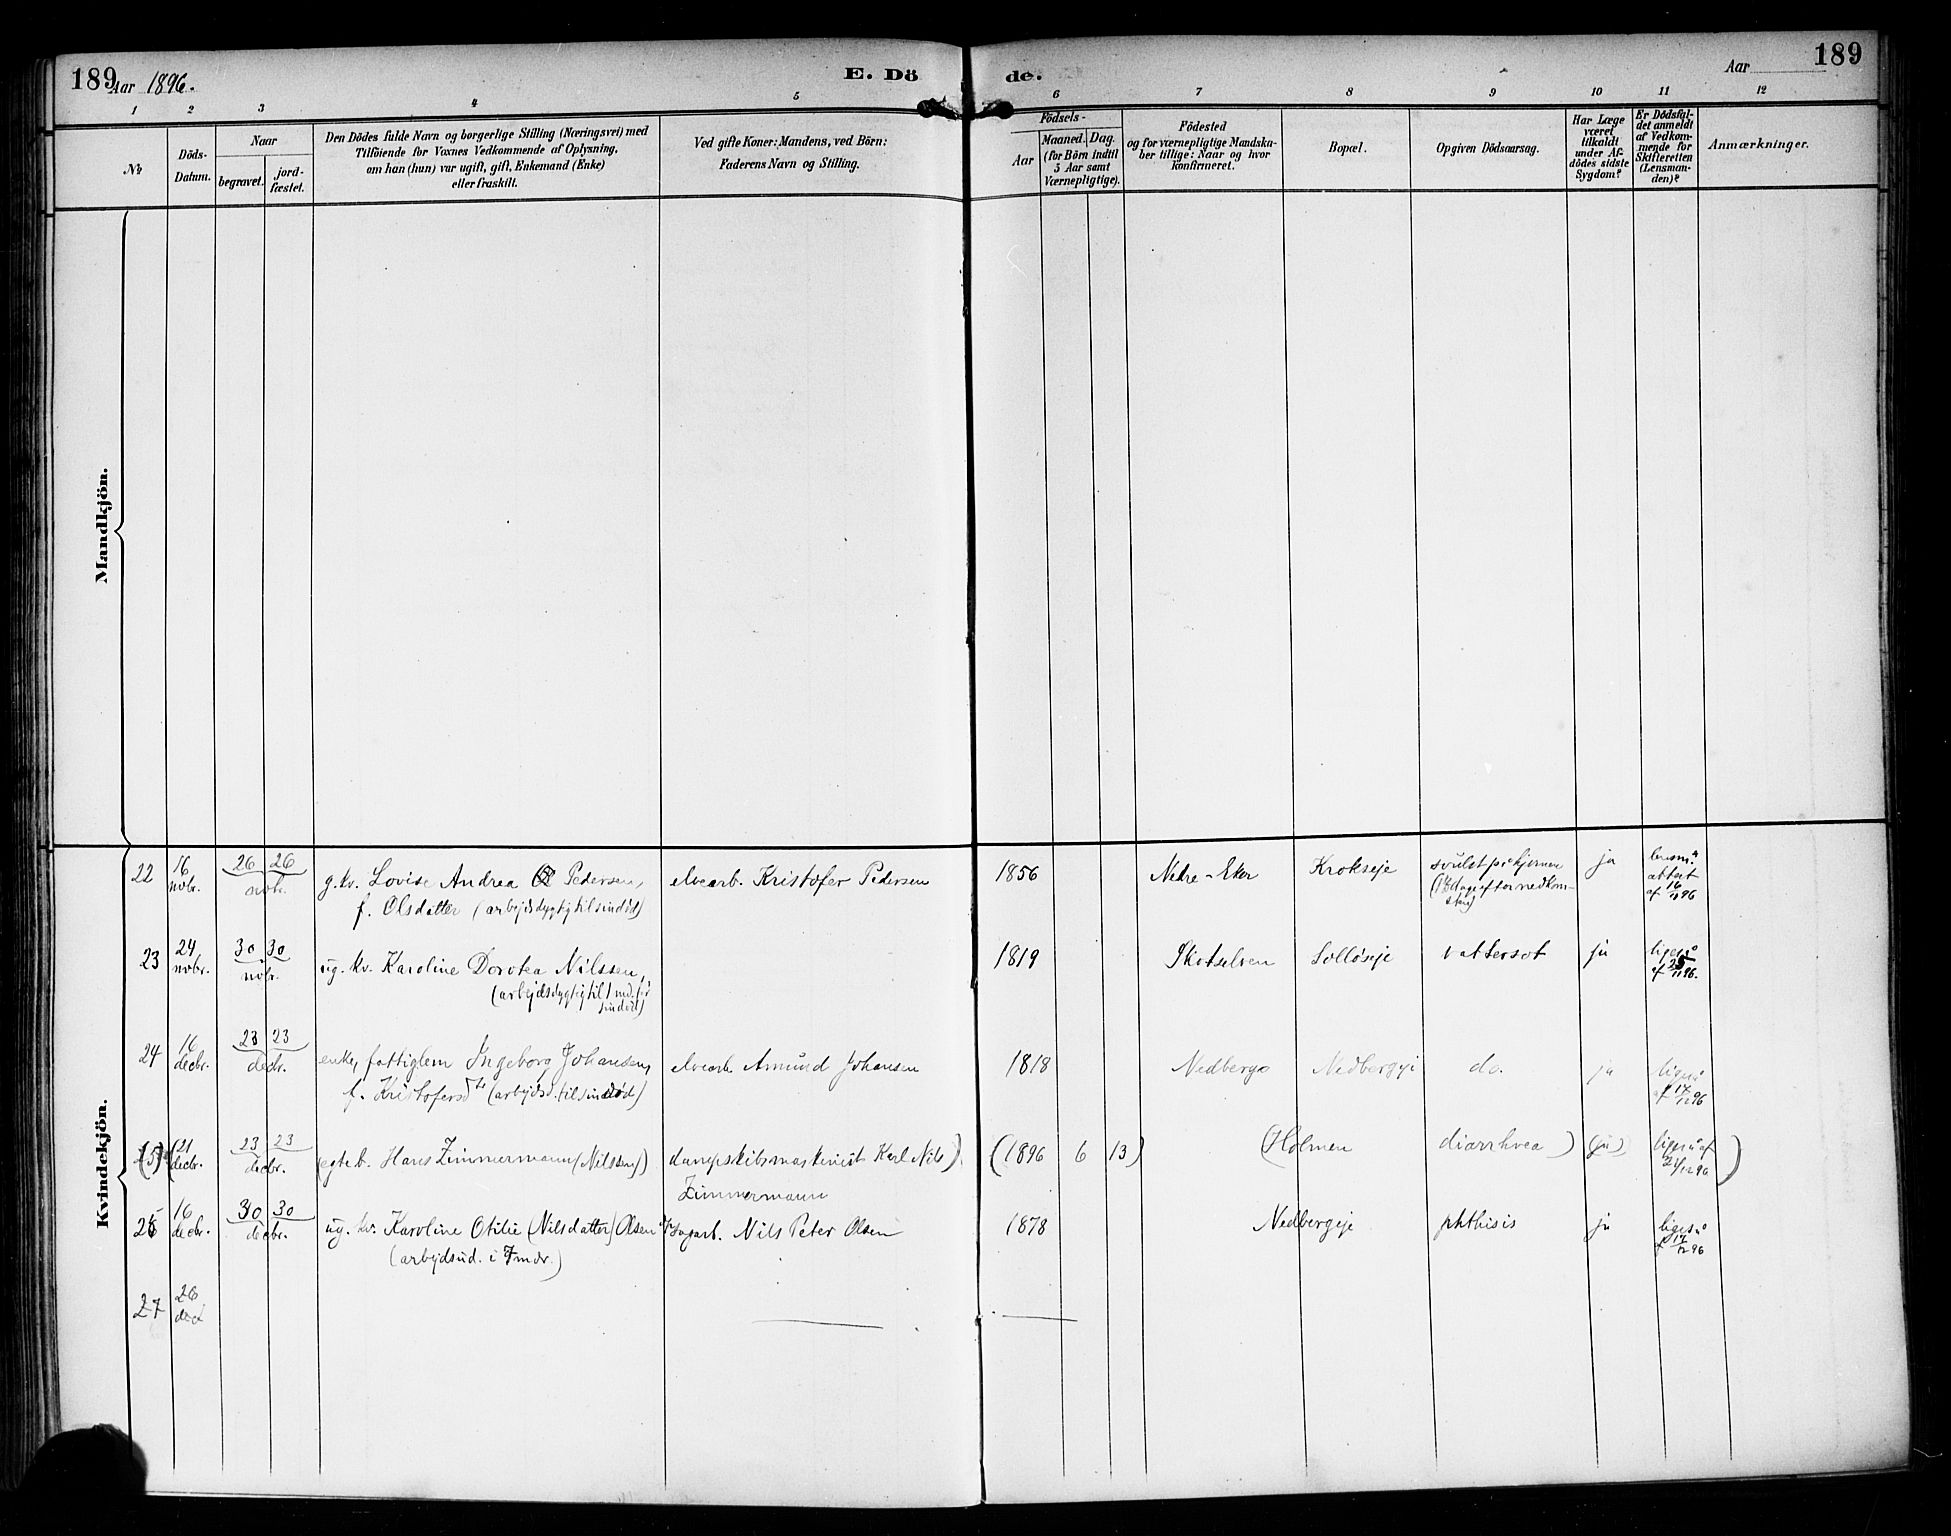 189
Aar 1896.
E. Dö
de.
Aar
189
1 2 3 4 5 6 7 8 9 10 11 12
Nr
Döds-
Datum.
Naar
begravet.
jord-
fæstet.
Den Dödes fulde Navn og borgerlige Stilling (Næringsvei) med
Tilföiende for Voxnes Vedkommende af Oplysning,
om han (hun) var ugift, gift, Enkemand (Enke)
eller fraskilt.
Ved gifte Koner: Mandens, ved Börn:
Faderens Navn og Stilling.
Födsels-
Aar
Maaned. Dag.
(for Börn indtil
5 Aar samt
Værnepligtige).
Födested
og for værnepligtige Mandska-
ber tillige: Naar og hvor
Konfirmeret.
Bopæl.
Opgiven Dödsaarsag.
Har Læge
været
tilkaldt
under Af-
dödes sidste
Sygdom?
Er Dödsfal-
det anmeldt
af Vedkom-
mende for
Skifteretten
(Lensman-
den)?
Anmærkninger.
Mandkjön.
Kvindekjön.
22
16
novbr.
26 26
novbr.
g. kv. Lovise Andrea Pedersen,
f. Olsdatter (arbejdsdygtig til sin död)
elvearb. Kristofer Pedersen
1856
Nedre-Eker
Krokseje
svulst på hjernen
dage efter nedkom-
sten)
ja
lensm.
attest
af 16/11 96
23
24
novbr.
30 30
novbr.
ug. kv. Karoline Dorotea Nilssen,
(arbejdsdygtig til 1 md. för
sin död)
1819
Skotselven
Solløseje
vattersot
ja
ligeså
af 25/11 96.
24
16
decbr.
23 23
decbr.
enke, fattiglem Ingeborg Johansen,
f. Kristofersdtr (arbejdsd. til sin död)
elvearb. Amund Johansen
1818
Nedberge
Nedbergeje
do.
ja
ligeså
af 17/12 96
(21
decbr.
23 23
decbr.
(egteb. Hans Zimmermann (Nilssen))
dampskibsmaskinist Karl Nils)
Zimmermann
(1896 6 13)
(Holmen
diarrhoea)
(ja)
ligeså af
21/12 96
)
25
16
decbr.
30 30
decbr.
ug. kv. Karoline Otilie (Nilsdatter) Olsen
(arbejdsud. i 7 mdr.)
sagarb. Nils Peter Olsen
1878
Nedbergeje
phthisis
ja
ligeså
af 17/12 96
27
26